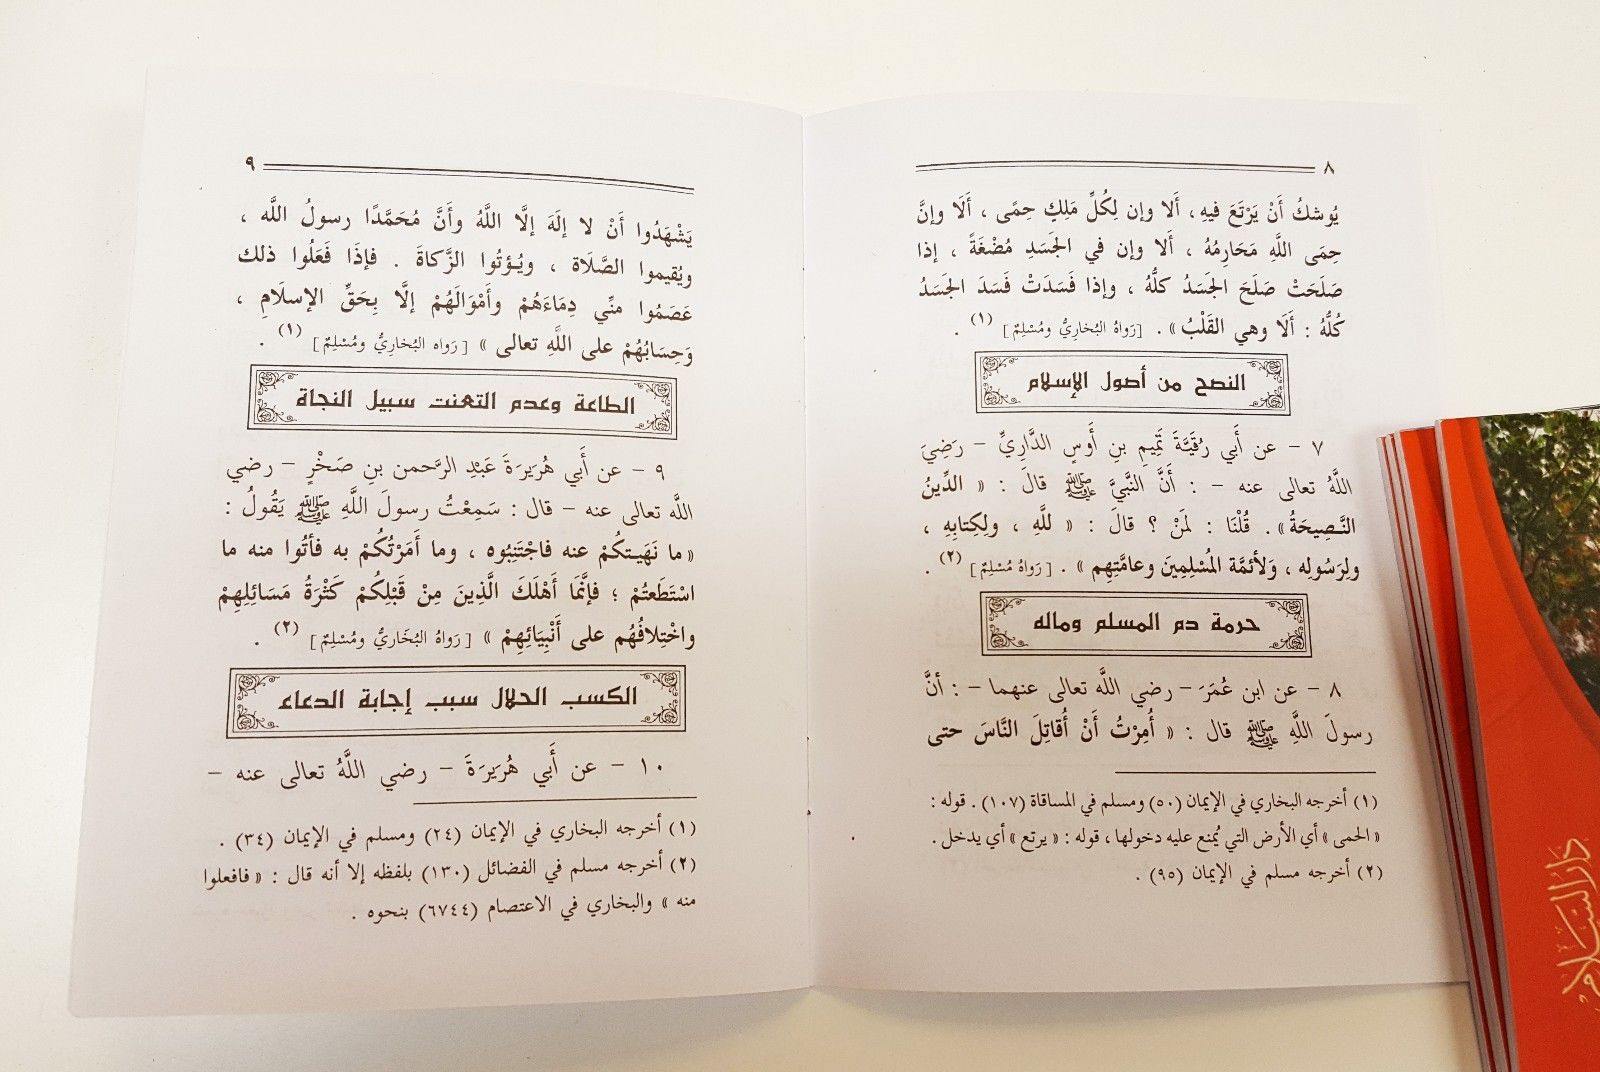 ٨
يُوشكُ أَنْ يَرْتَعَ فيهِ ، أَلا وإن لِكُلِّ مَلِكٍ حِمًى ، أَلَا وإنَّ
حِمَى اللَّهِ مَحَارِمُهُ ، أَلا وإن في الجَسَدِ مُضْغَةً ، إذا
صَلَحَتْ صَلَحَ الجَسَدُ كلُّهُ ، وإذا فَسَدَتْ فَسَدَ الجَسَدُ
كُلُّهُ : أَلَا وهي القَلْبُ » . [رَوَاهُ البُخاريُّ ومُسْلِمٌ] (١) .
النصح من أصول الإسلام
٧ – عن أَبي رُقَيَّةَ تَمِيمِ بنِ أَوسٍ الدَّاريِّ – رَضِيَ
اللَّهُ تعالى عنه – : أَنَّ النَّبيَّ ﷺ قالَ : « الدِّينُ
النَّصِيحَةُ » . قُلْنَا : لمَنْ ؟ قالَ : « للَّهِ ، ولِكِتابِهِ ،
ولِرَسُولِه ، وَلأئمَّة المُسْلِمِينَ وعامَّتِهِم » . [رَوَاهُ مُسْلِمٌ] (٢) .
حرمة دم المسلم وماله
٨ – عن ابن عُمَرَ – رضي اللَّه تعالى عنهما – : أنَّ
رسولَ اللَّهِ ﷺ قال : « أُمِرْتُ أَنْ أُقَاتِلَ النَّاسَ حتى
(١) أخرجه البخاري في الإيمان (٥٠) ومسلم في المساقاة (١٠٧) . قوله :
« الحمى » أي الأرض التي يُمنع عليه دخولها ، قوله : « يرتع » أي يدخل .
(٢) أخرجه مسلم في الإيمان (٩٥) .
٩
يَشْهَدُوا أَنْ لا إلَهَ إلَّا اللَّهُ وأَنَّ مُحَمَّدًا رسولُ اللَّه ،
ويُقيموا الصَّلَاة ، ويُؤتُوا الزَّكاةَ . فإذَا فَعَلُوا ذلك
عَصَمُوا منِّي دِمَاءَهُمْ وأَمْوَالَهُمْ إلَّا بِحَقِّ الإسلَامِ ،
وَحِسَابُهُمْ على اللَّهِ تعالى » [رَوَاه البُخاريُّ ومُسْلِمٌ] (١) .
الطاعة وعدم التعنت سبيل النجاة
٩ – عن أَبي هُرَيرَةَ عَبْدِ الرَّحمن بنِ صَخْرٍ – رضي
اللَّه تعالى عنه – قال : سَمِعْتُ رسولَ اللَّهِ ﷺ يَقُولُ :
« ما نَهَيتكُمْ عنه فاجْتَنِبُوه ، وما أَمَرْتُكُمْ به فأتُوا منه ما
اسْتَطَعتُمْ ؛ فإنَّمَا أَهْلَكَ الَّذِينَ مِنْ قَبْلِكُمْ كَثْرَةُ مَسَائِلِهِمْ
واخْتِلافُهُم على أَنْبِيَائِهِمْ » [رَوَاهُ البُخَاريُّ ومُسْلِمٌ] (٢) .
الكسب الحلال سبب إجابة الدعاء
١٠ – عن أَبي هُرَيرَةَ – رضي اللَّهُ تعالى عنه –
(١) أخرجه البخاري في الإيمان (٢٤) ومسلم في الإيمان (٣٤) .
(٢) أخرجه مسلم في الفضائل (١٣٠) بلفظه إلا أنه قال : « فافعلوا
منه » والبخاري في الاعتصام (٦٧٤٤) بنحوه .
دار السلام